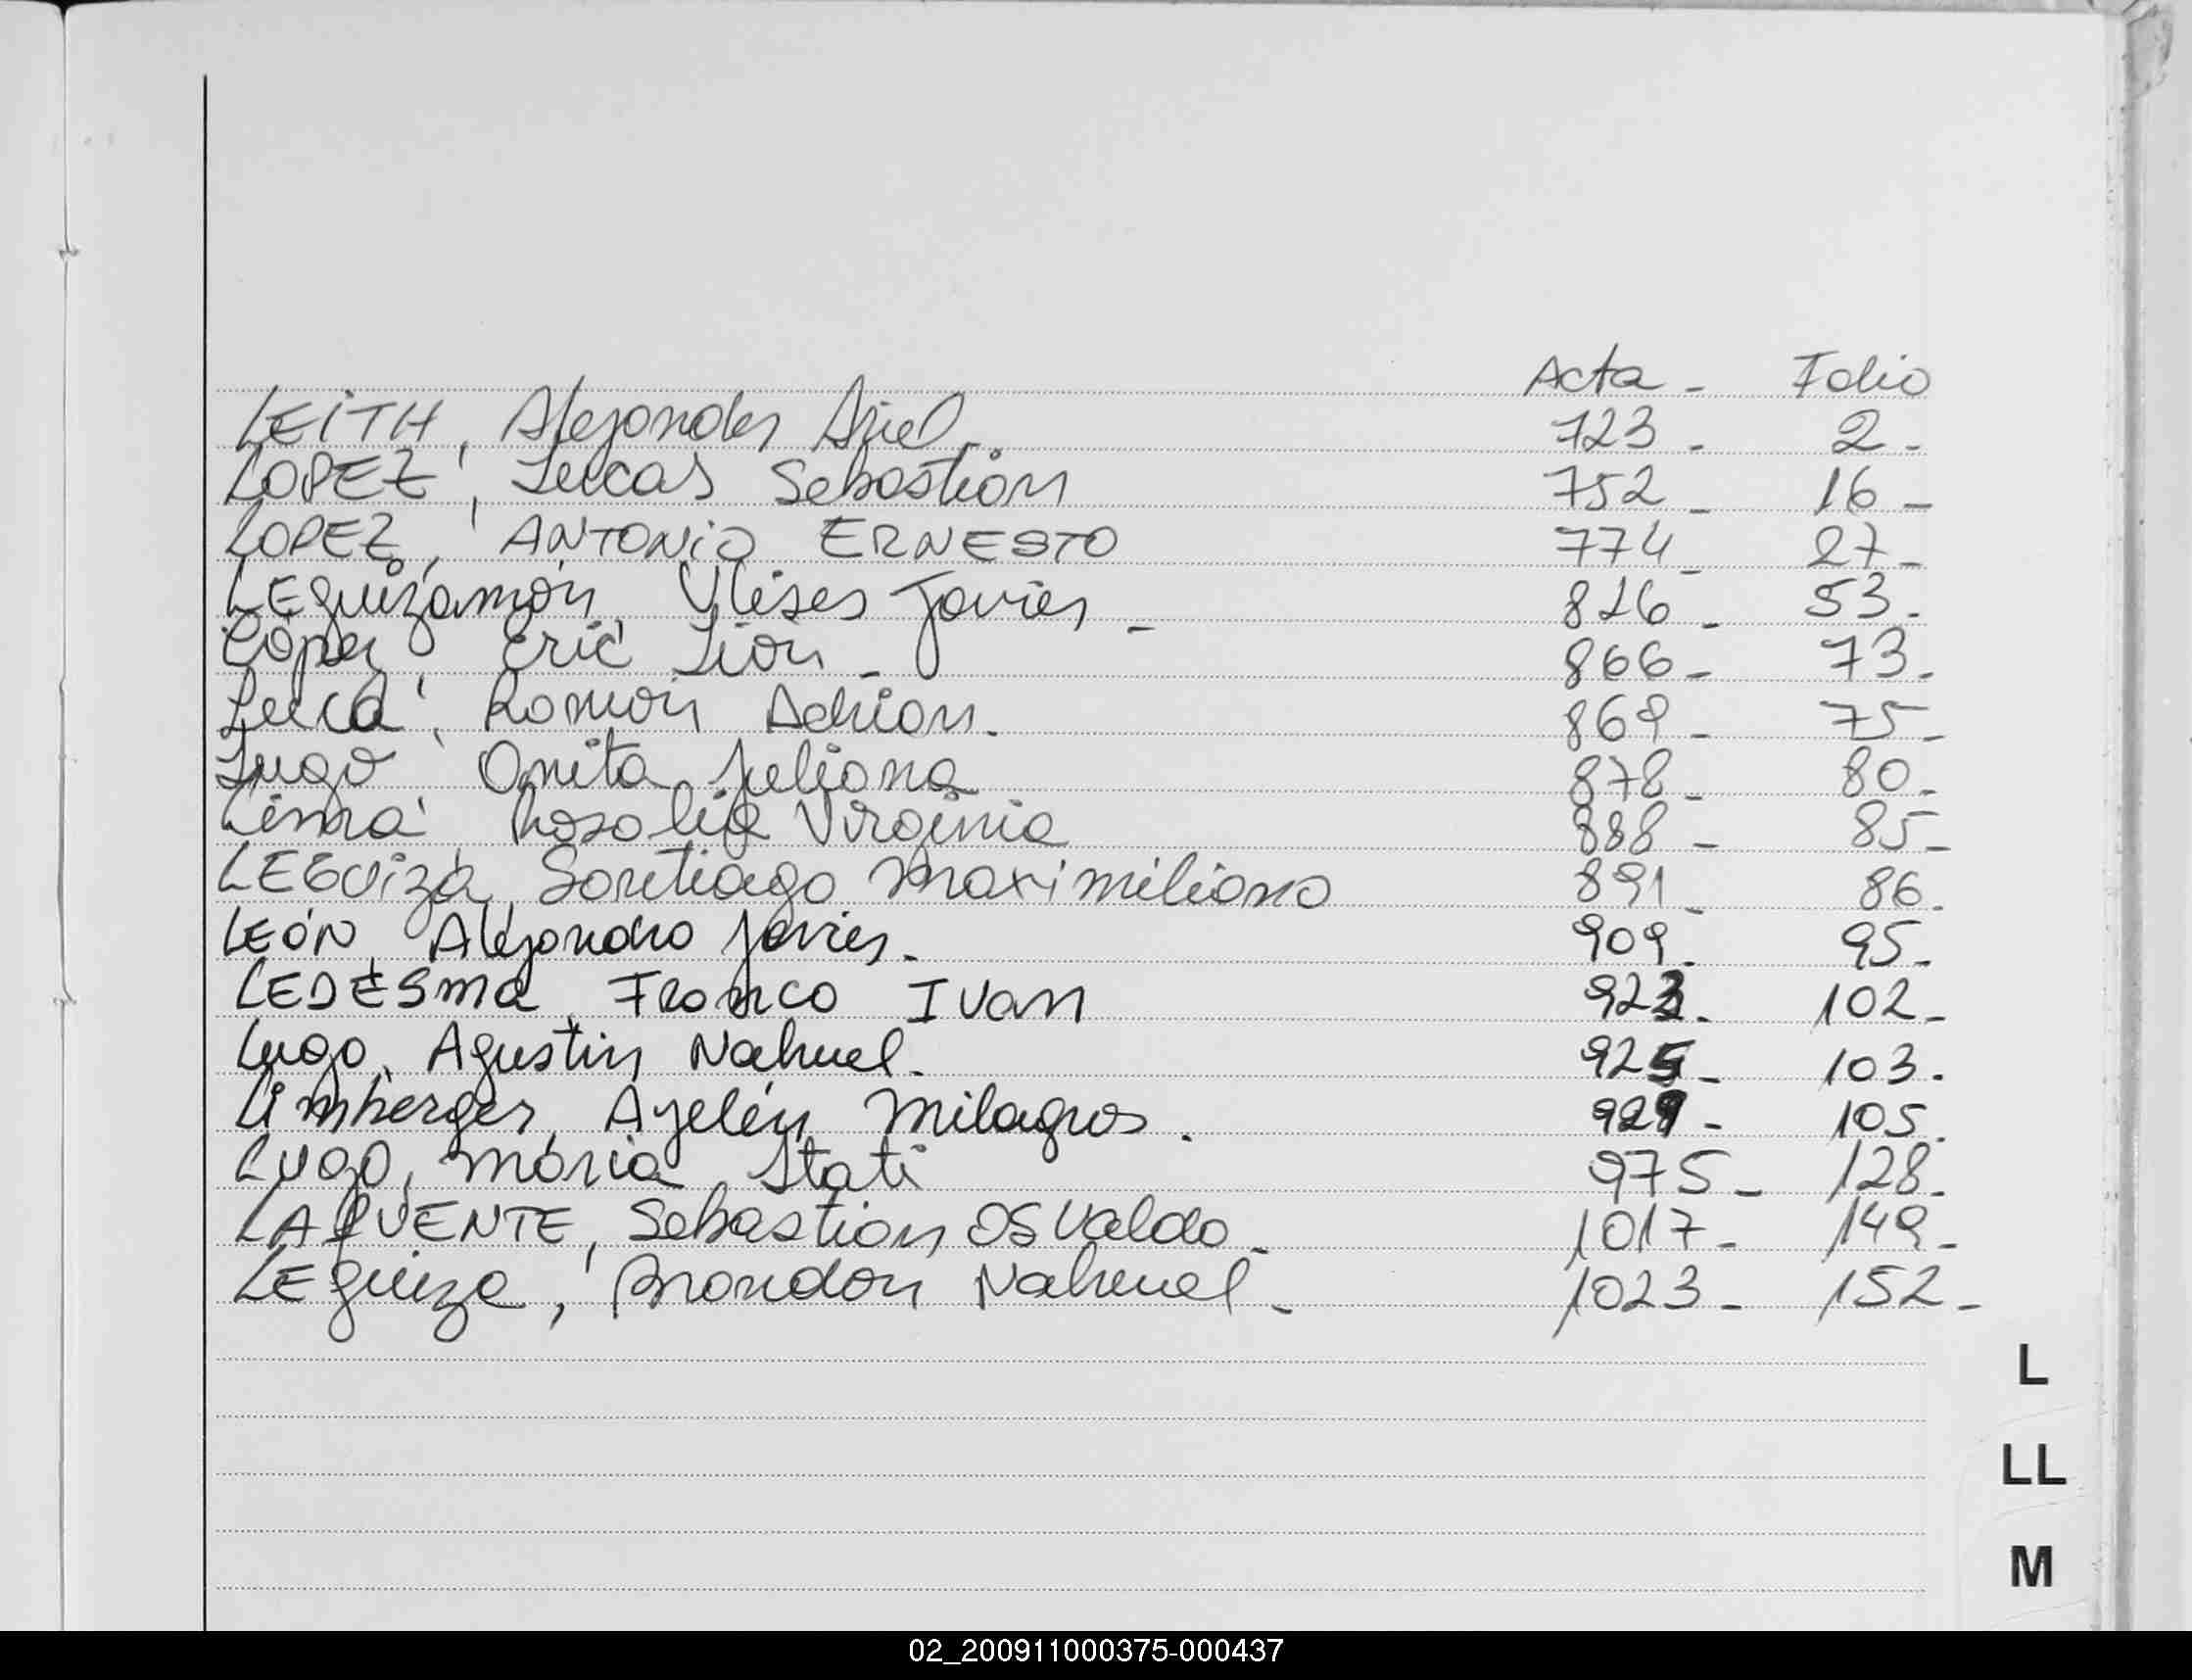 Acta - Folio
LEITH, Alejandro Ariel. 723 - 2 -
LOPEZ, Lucas Sebastián 752 - 16 -
LOPEZ, ANTONIO ERNESTO 774 - 27 -
LEguizamón, Ulises Javier - 826 - 53 -
López, Eric Lián - 866 - 73 -
Luca, Román Adrián - 869 - 75 -
Lugo, Anita Juliana 878 - 80 -
Lima, Rosalía Virginia 888 - 85 -
LEGUiza, Santiago Maximiliano 891 - 86 -
LEÓN, Alejandro Javier - 909 - 95 -
LEDESma, Franco Ivan 923 - 102 -
Lugo, Agustín Nahuel - 925 - 103 -
Limberger, Ayelén Milagros. 929 - 105 -
Lugo, María Itatí 975 - 128 -
LAFUENTE, Sebastián OSvaldo - 1017 - 149 -
LEguiza, Brandon Nahuel - 1023 - 152 -
L
LL
M
02_200911000375-000437